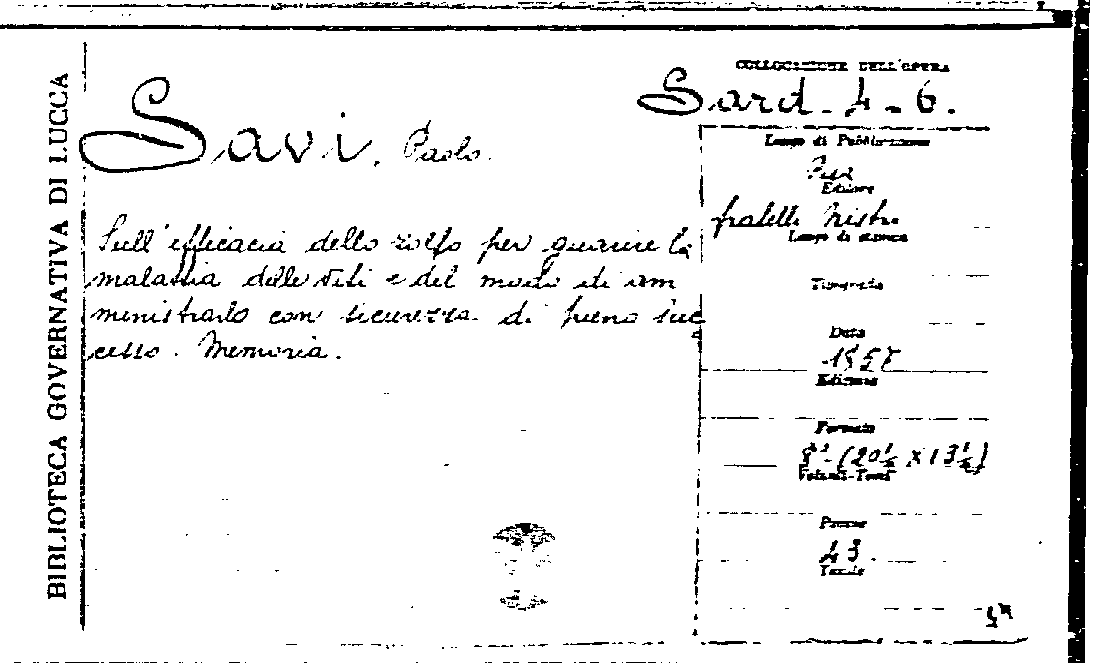 BIBLIOTECA GOVERNATIVA DI LUCCA
COLLOCAZIONE DELL'OPERA
Sard. 4-6.
Savi, Paolo.
Sull'efficacia dello zolfo per guarire la
malattia delle viti e del modo di am
ministrarlo con sicurezza di pieno suc
cesso. Memoria.
Luogo di Pubblicazione
Pisa
Editore
fratelli Nistri
Luogo di stampa
Tipografia
Data
Edizione
Formato
8° (20½ x 13½)
Volumi-Tomi
Pagine
43.
Tavole